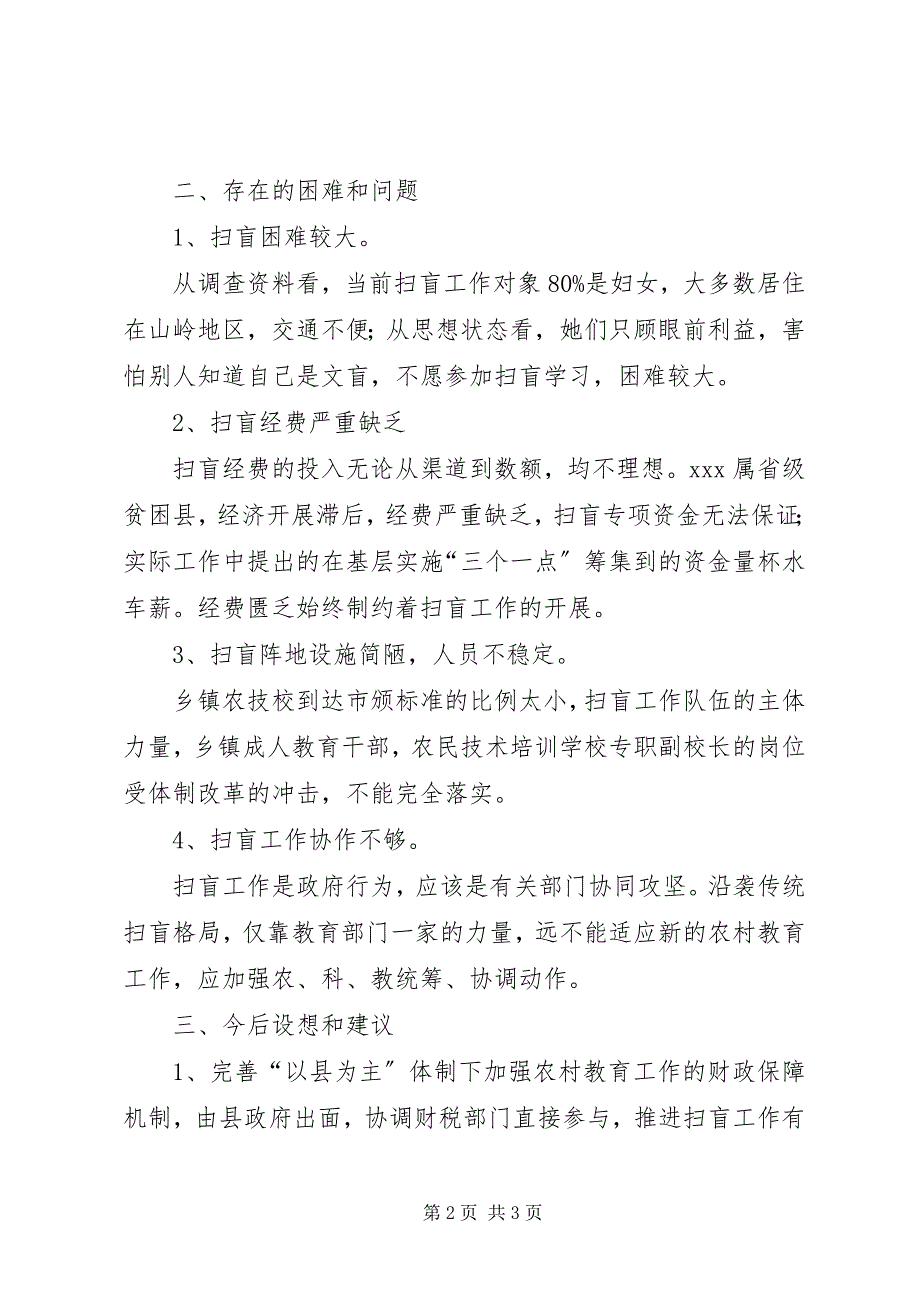 二、存在的困难和问题
1、扫盲困难较大。
从调查资料看，当前扫盲工作对象80%是妇女，大多数居住
在山岭地区，交通不便；从思想状态看，她们只顾眼前利益，害
怕别人知道自己是文盲，不愿参加扫盲学习，困难较大。
2、扫盲经费严重缺乏
扫盲经费的投入无论从渠道到数额，均不理想。xxx属省级
贫困县，经济开展滞后，经费严重缺乏，扫盲专项资金无法保证；
实际工作中提出的在基层实施“三个一点〞筹集到的资金量杯水
车薪。经费匮乏始终制约着扫盲工作的开展。
3、扫盲阵地设施简陋，人员不稳定。
乡镇农技校到达市颁标准的比例太小，扫盲工作队伍的主体
力量，乡镇成人教育干部，农民技术培训学校专职副校长的岗位
受体制改革的冲击，不能完全落实。
4、扫盲工作协作不够。
扫盲工作是政府行为，应该是有关部门协同攻坚。沿袭传统
扫盲格局，仅靠教育部门一家的力量，远不能适应新的农村教育
工作，应加强农、科、教统筹、协调动作。
三、今后设想和建议
1、完善“以县为主〞体制下加强农村教育工作的财政保障
机制，由县政府出面，协调财税部门直接参与，推进扫盲工作有
第2页 共3页